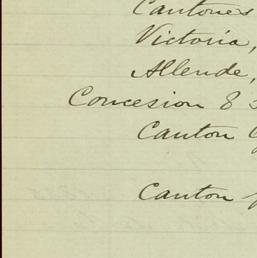 Cantones
Victoria,
Allende,
Concesion 8
Canton
Canton